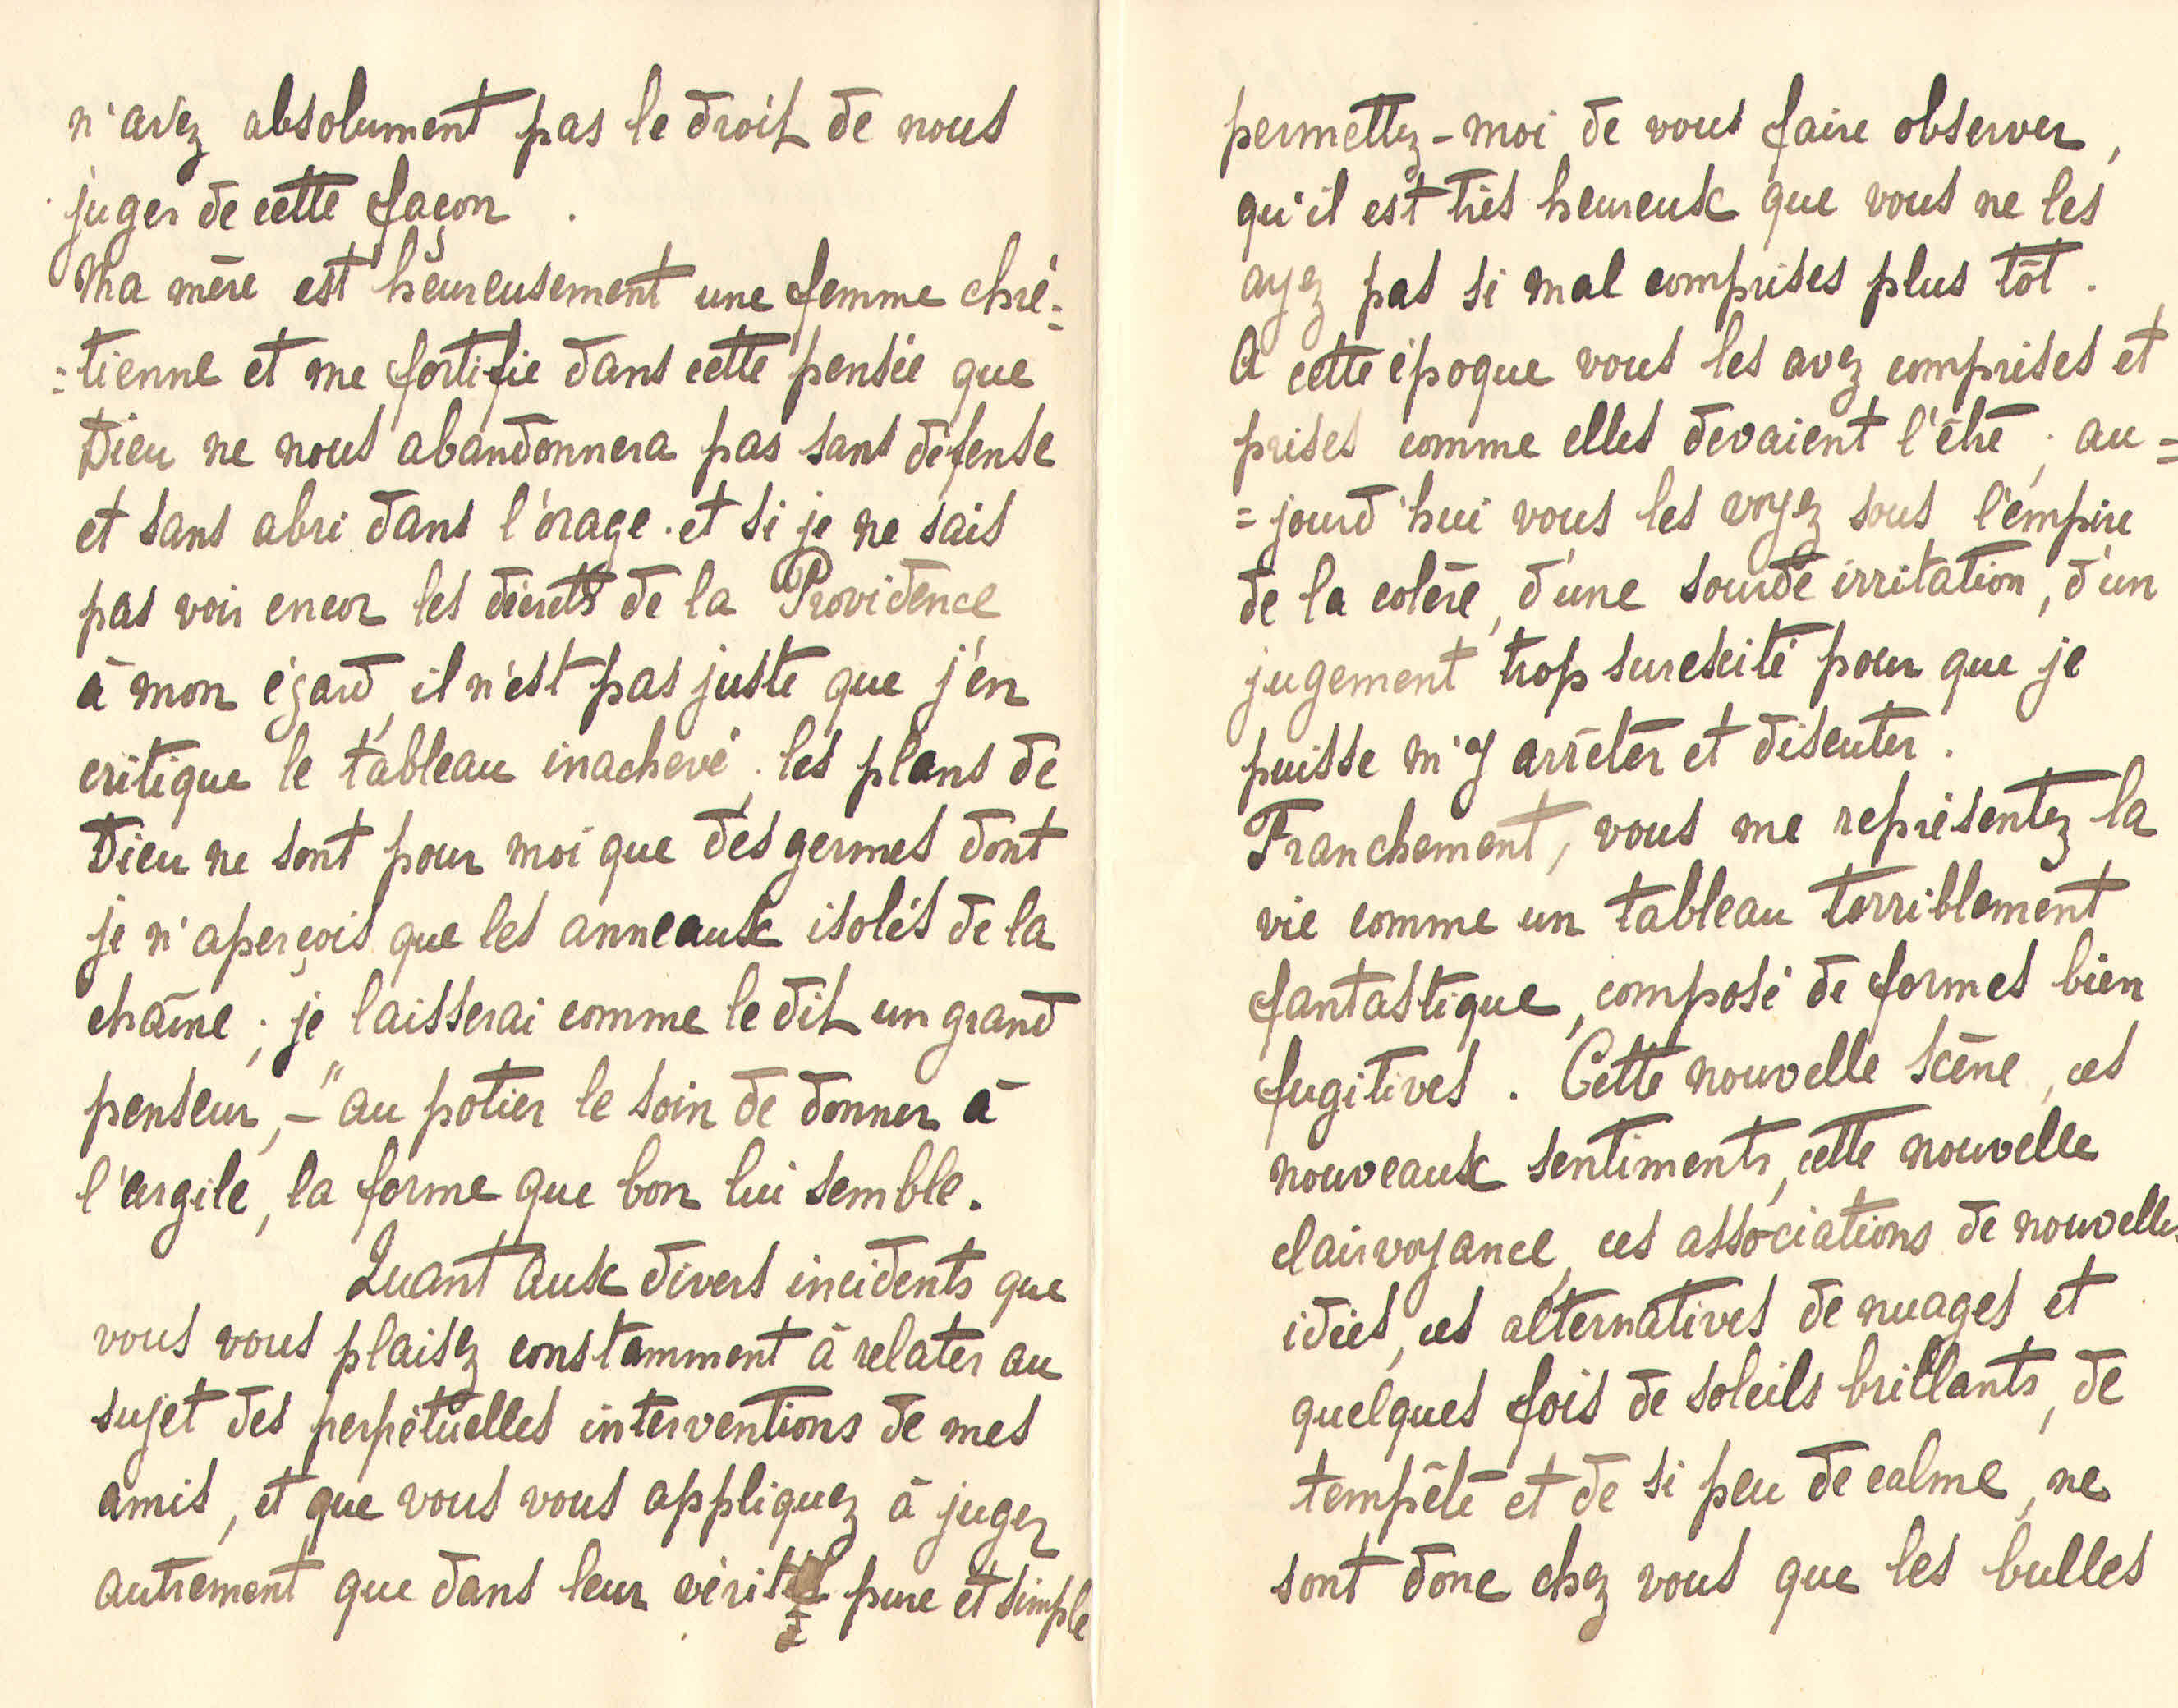 n'avez absolument pas le droit de nous
juger de cette façon.
Ma mère est heureusement une femme chré=
=tienne et me fortifie dans cette pensée que
Dieu ne nous abandonnera pas sans défense
et sans abri dans l'orage. et si je ne sais
pas voir encor les décrets de la Providence
à mon égard, il n'est pas juste que j'en
critique le tableau inachevé; les plans de
Dieu ne sont pour moi que des germes dont
je n'aperçois que les anneaux isolés de la
chaîne; je laisserai comme le dit un grand
penseur, - "au potier le soin de donner à
l'argile, la forme que bon lui semble.
Quant aux divers incidents que
vous vous plaisez constamment à relater au
sujet des perpétuelles interventions de mes
amis, et que vous vous appliquez à juger
autrement que dans leur vérité pure et simple
permettez-moi de vous faire observer,
qu'il est très heureux que vous ne les
ayez pas si mal comprises plus tôt.
A cette époque vous les avez comprises et
prises comme elles devaient l'être; au=
=jourd'hui vous les voyez sous l'empire
de la colère, d'une sourde irritation, d'un
jugement trop surexcité pour que je
puisse m'y arrêter et discuter.
Franchement, vous me représentez la
vie comme un tableau terriblement
fantastique, composé de formes bien
fugitives. Cette nouvelle scène, ces
nouveaux sentiments, cette nouvelle
clairvoyance, ces associations de nouvelles
idées, ces alternatives de nuages et
quelques fois de soleils brillants, de
tempête et de si peu de calme, ne
sont donc chez vous que les bulles